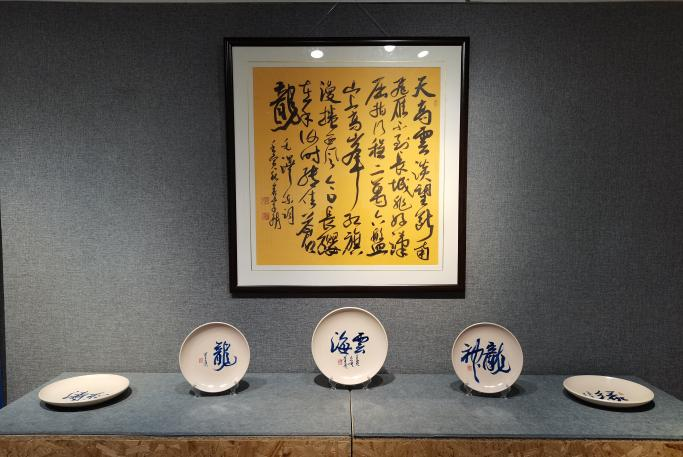 天高雲淡望断南
飛雁不到長城非好漢
屈指行程二萬六盤
山上高峰红旗
漫捲西風今日長纓
在手何時縛住蒼
龍
毛澤东詞
壬寅秋
龍
雲海
龍神